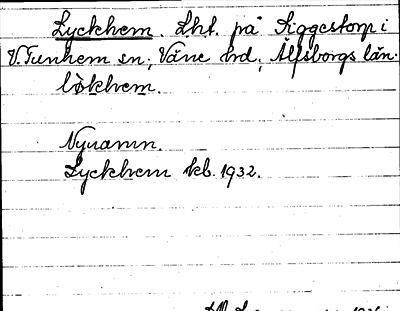 Lyckhem. Lht. på Siggestorp i
V. Tunhem sn; Väne hd; Älfsborgs län.
lỳkhem.
Nynamn.
Lyckhem kb. 1932.